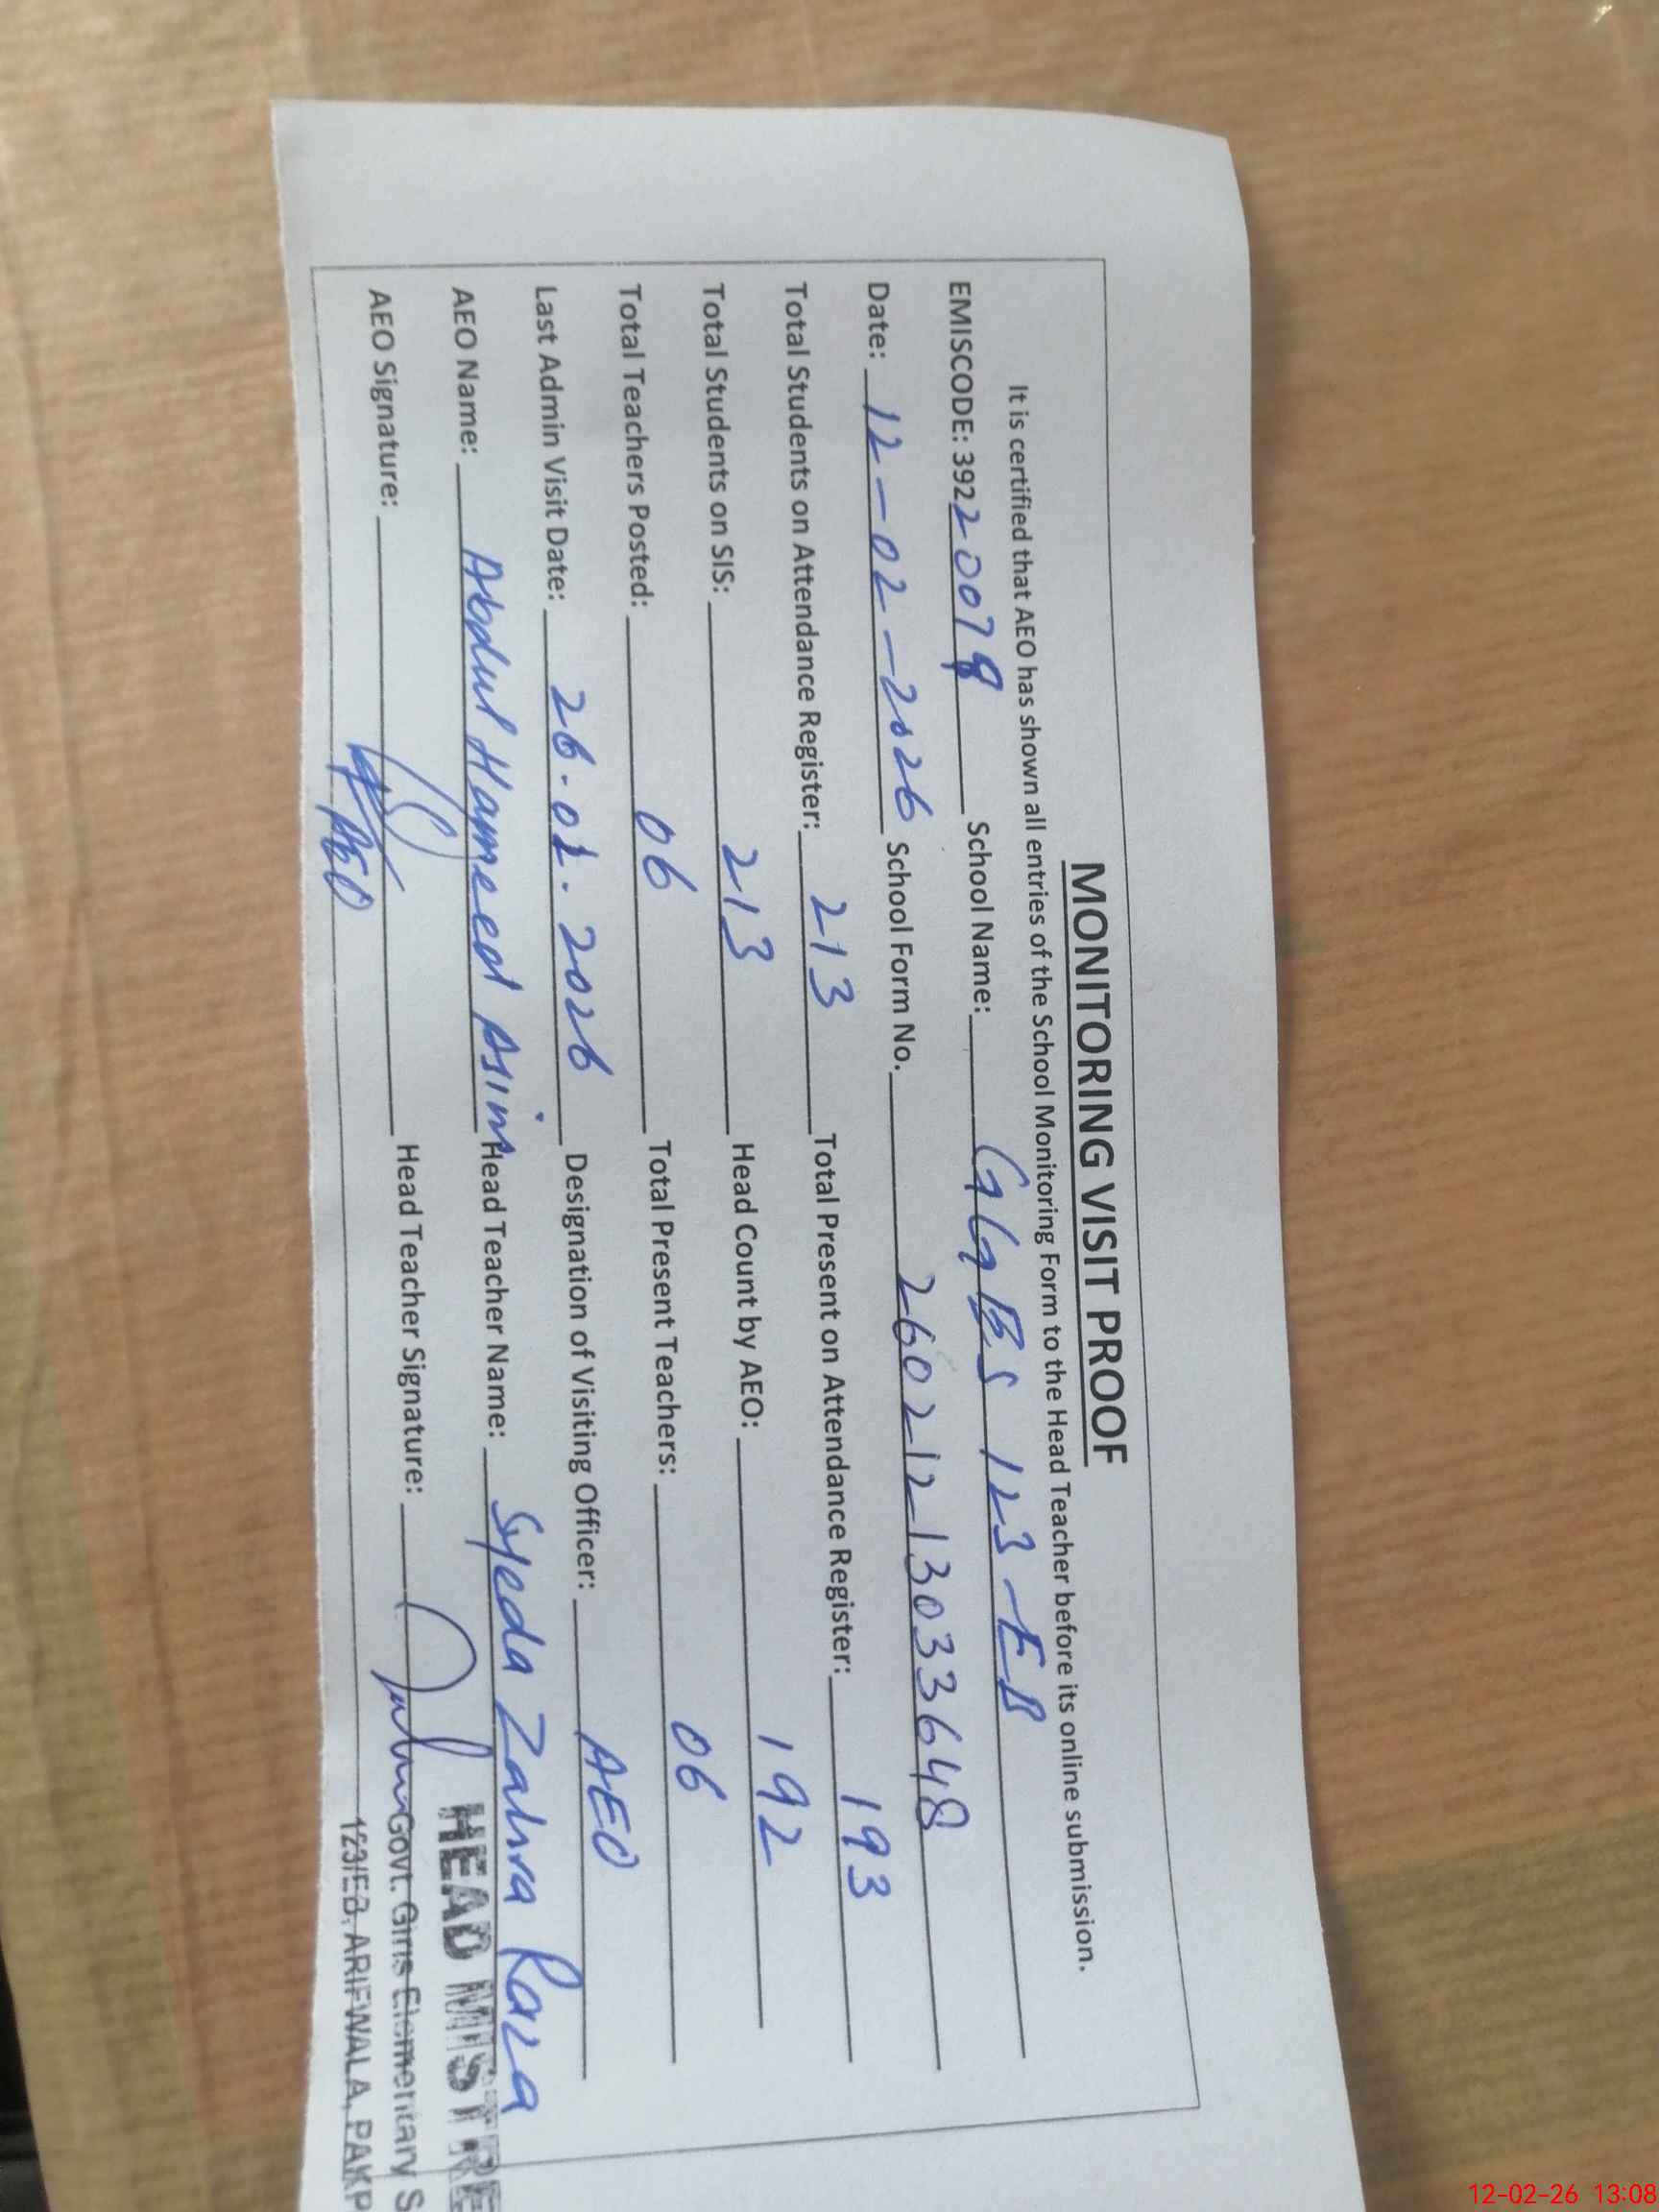 MONITORING VISIT PROOF
It is certified that AEO has shown all entries of the School Monitoring Form to the Head Teacher before its online submission.
EMISCODE: 39220079 School Name: GGES 123-EB
Date: 12-02-2026 School Form No. 26021213033648
Total Students on Attendance Register: 213 Total Present on Attendance Register: 193
Total Students on SIS: 213 Head Count by AEO: 192
Total Teachers Posted: 06 Total Present Teachers: 06
Last Admin Visit Date: 26.01.2026 Designation of Visiting Officer: AEO
AEO Name: Abdul Hameed Asim Head Teacher Name: Syeda Zahra Raza
AEO Signature: AEO Head Teacher Signature:
HEAD MISTRE
Govt. Girls Elementary S
123/EB, ARIFWALA, PAKP
12-02-26 13:08